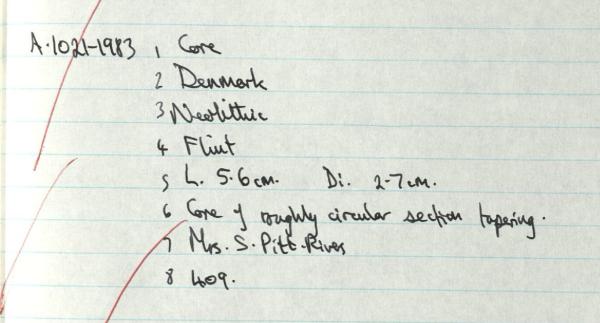 A.1021-1983 1 Core
2 Denmark
3 Neolithic
4 Flint
5 L. 5.6cm. Di. 2.7cm.
6 Core of roughly circular section tapering.
7 Mrs. S. Pitt-Rivers
8 409.